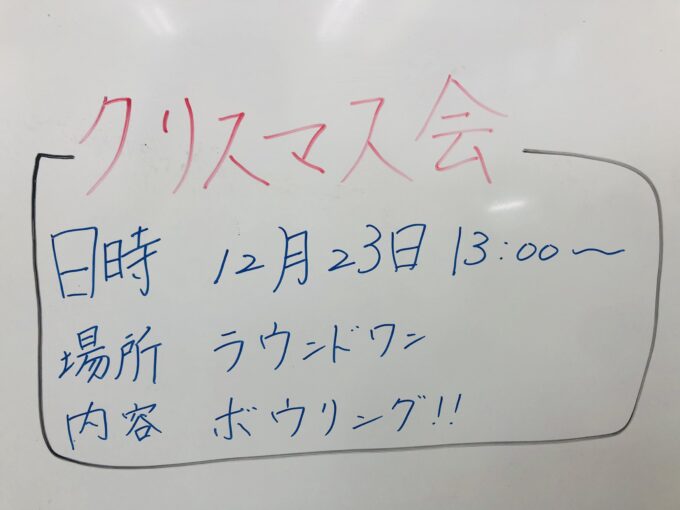 クリスマス会
日時 12月23日 13:00～
場所 ラウンドワン
内容 ボウリング!!